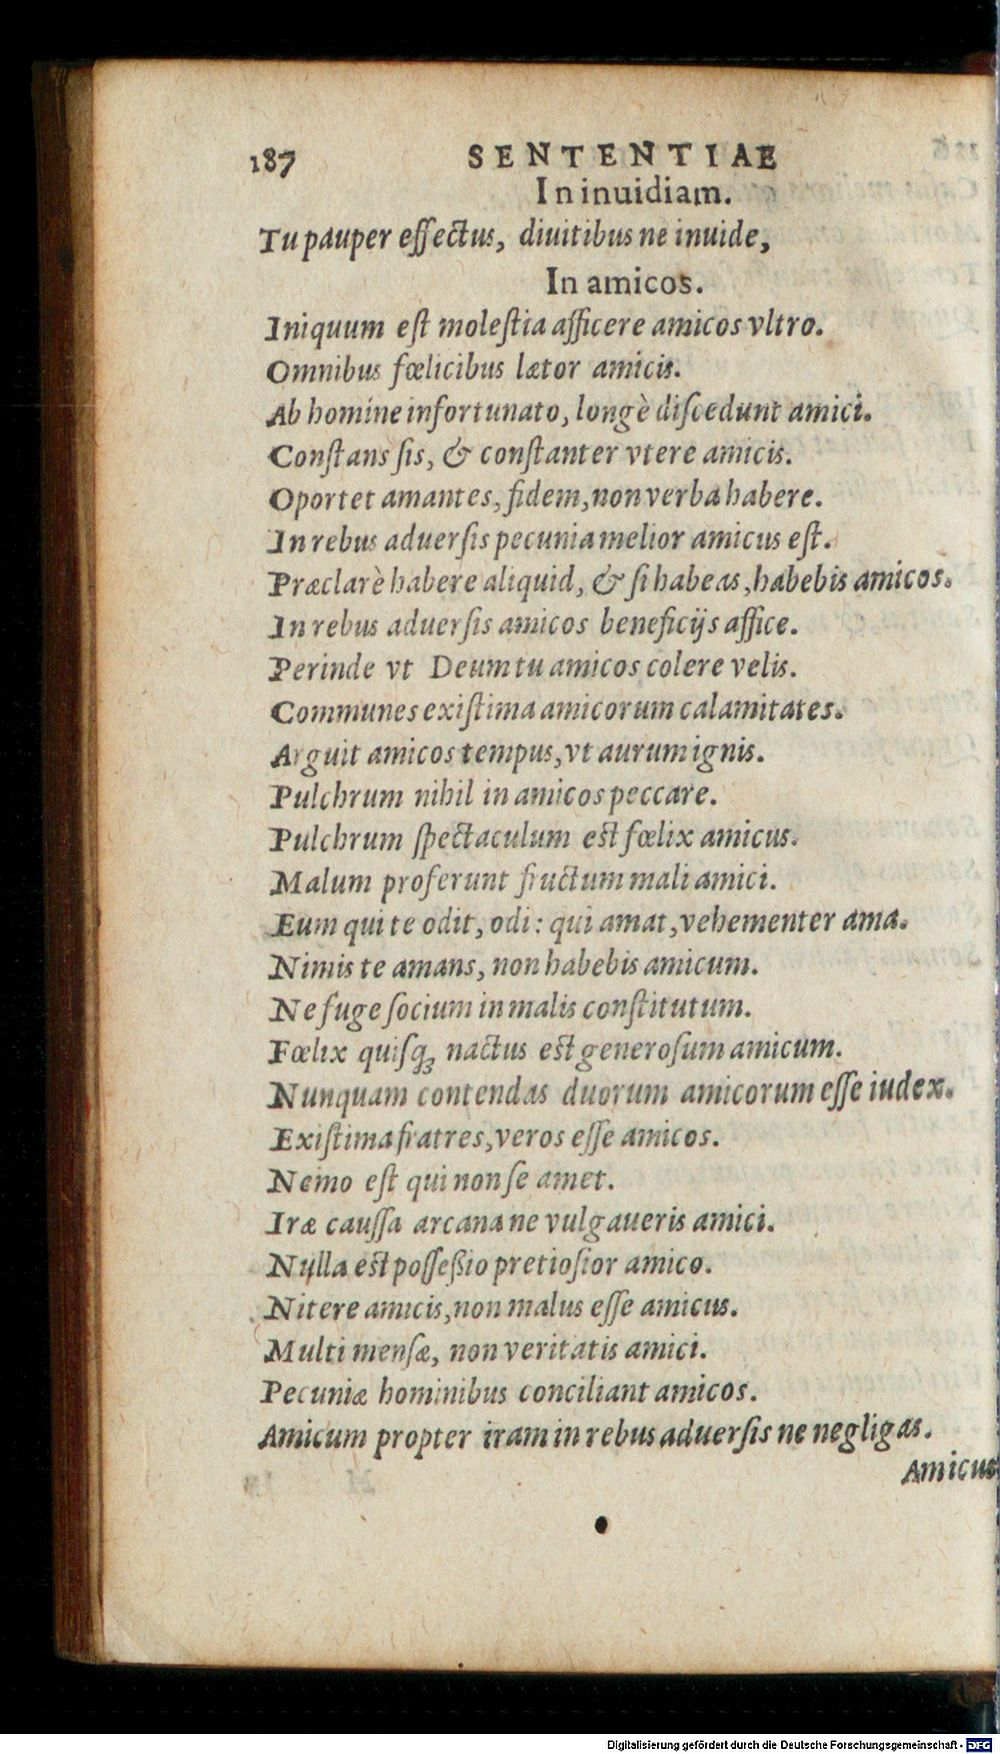 187 SENTENTIAE
In inuidiam.
Tu pauper effectus, diuitibus ne inuide,
In amicos.
Iniquum eſt moleſtia afficere amicos vltro.
Omnibus fœlicibus lætor amicis.
Ab homine infortunato, longè diſcedunt amici.
Conſtans ſis, & conſtanter vtere amicis.
Oportet amantes, fidem, non verba habere.
In rebus aduerſis pecunia melior amicus eſt.
Præclarè habere aliquid, & ſi habeas, habebis amicos.
In rebus aduerſis amicos beneficijs affice.
Perinde vt Deum tu amicos colere velis.
Communes exiſtima amicorum calamitates.
Arguit amicos tempus, vt aurum ignis.
Pulchrum nihil in amicos peccare.
Pulchrum ſpectaculum eſt fœlix amicus.
Malum proferunt fructum mali amici.
Eum qui te odit, odi: qui amat, vehementer ama.
Nimis te amans, non habebis amicum.
Ne fuge ſocium in malis conſtitutum.
Fœlix quiſq; nactus eſt generoſum amicum.
Nunquam contendas duorum amicorum eſſe iudex.
Exiſtima fratres, veros eſſe amicos.
Nemo eſt qui non ſe amet.
Iræ cauſſa arcana ne vulgaueris amici.
Nulla eſt poſſeßio pretioſior amico.
Nitere amicis, non malus eſſe amicus.
Multi menſæ, non veritatis amici.
Pecuniæ hominibus conciliant amicos.
Amicum propter iram in rebus aduerſis ne negligas.
Amicus
Digitalisierung gefördert durch die Deutsche Forschungsgemeinschaft - DFG